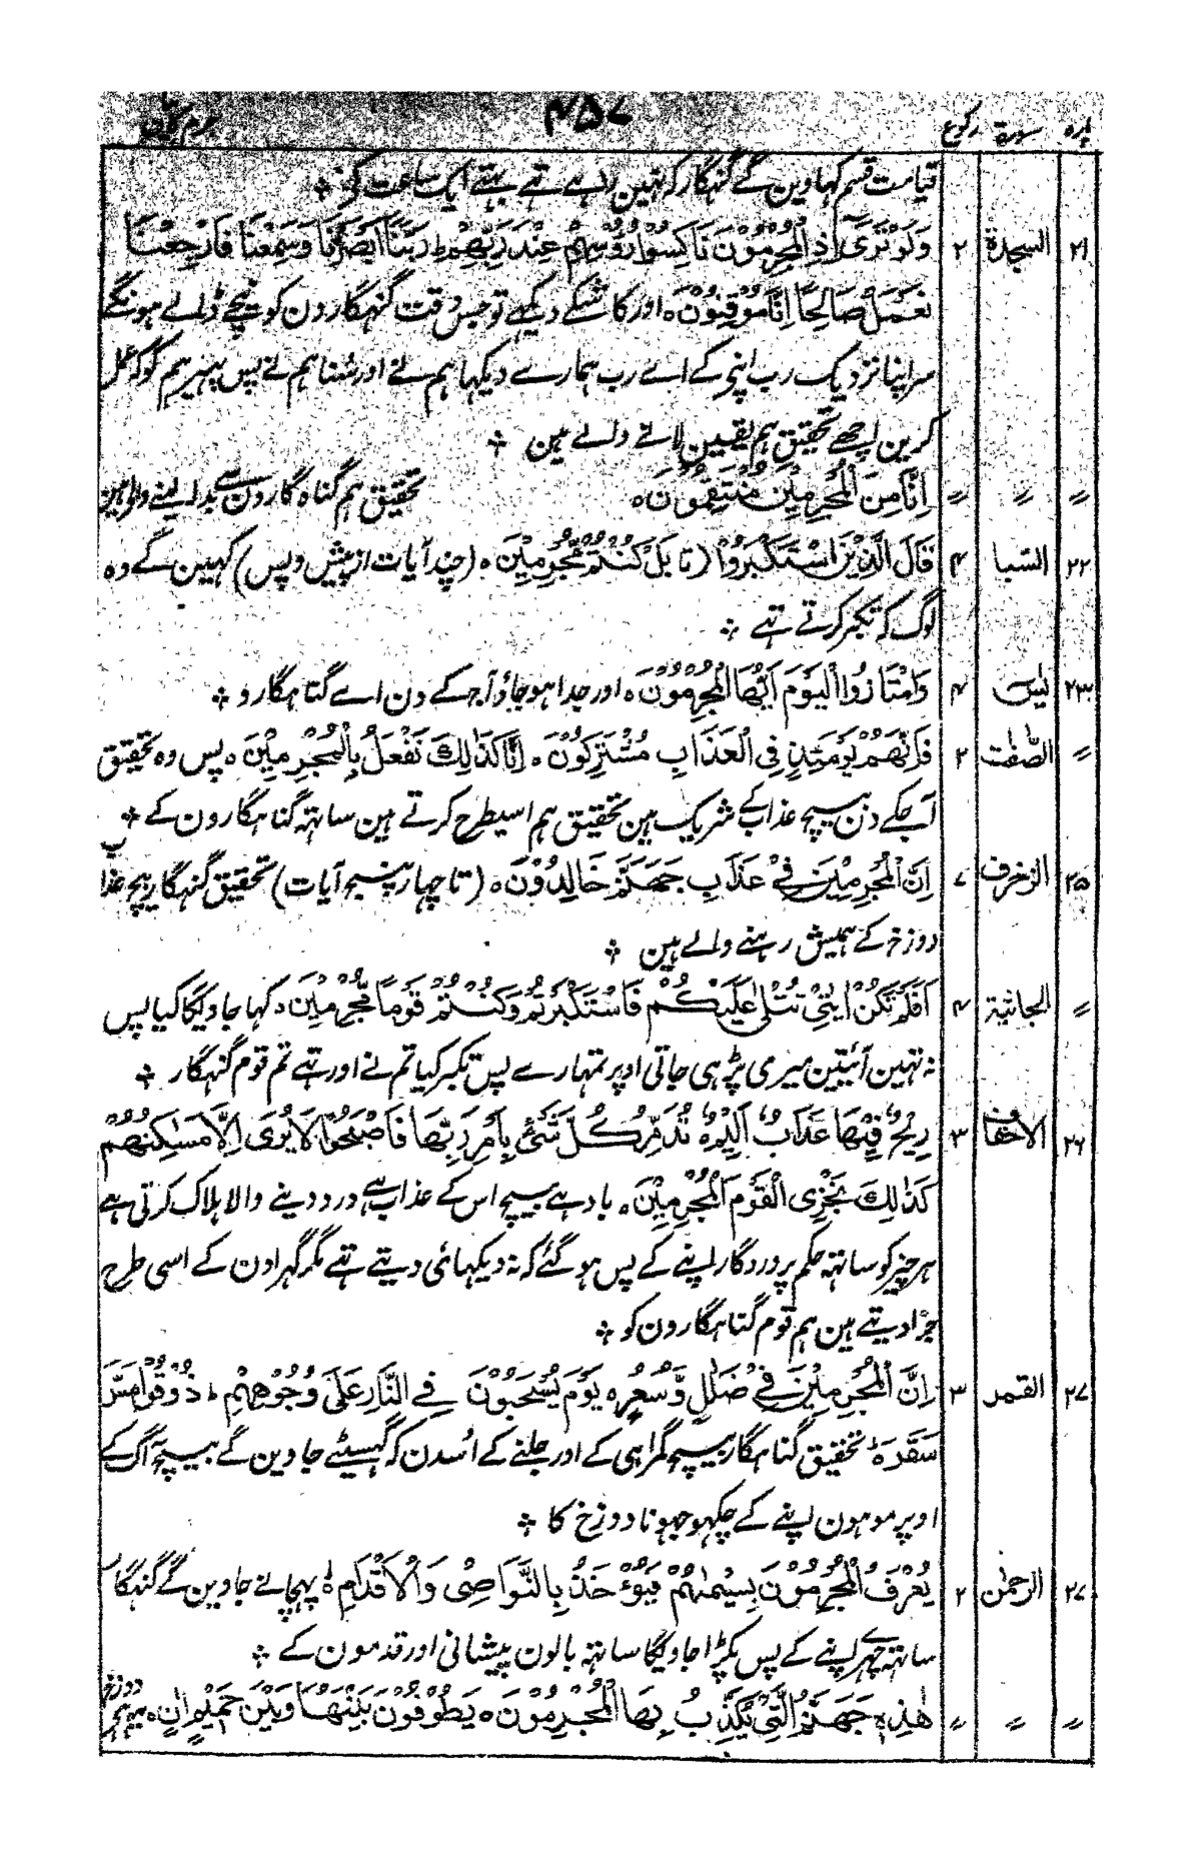 پارہ سورۃ رکوع ۴۵۷
قیامت قسم کہاوین گے گنہگار کہ نہین رہے تہے بہتے ایک ساعت کو ؞
۲۱ السجدۃ ۲ وَلَوْ تَرٰٓی اِذِ الْمُجْرِمُوْنَ نَاكِسُوْا رُءُوْسِهِمْ عِنْدَ رَبِّهِمْ ط رَبَّنَا اَبْصَرْنَا وَسَمِعْنَا فَارْجِعْنَا
نَعْمَلْ صَالِحًا اِنَّا مُوْقِنُوْنَ ہ اور کاشکے دیکہے تو جس وقت گنہگارون کو نیچے ڈالے ہونگے
سر اپنا نزدیک رب اپنی کے اے رب ہمارے دیکہا ہم نے اور سُنا ہم نے پس پہیر ہم کو کہ عمل
کرین اچھے تحقیق ہم یقین لانے والے ہین ؞
〃 〃 〃 اِنَّا مِنَ الْمُجْرِمِیْنَ مُنْتَقِمُوْنَ ہ تحقیق ہم گناہ گارون سے بدلہ لینے والی ہین
۲۲ السَّبا ۴ قَالَ الَّذِیْنَ اسْتَكْبَرُوْا (تا بَلْ كُنْتُمْ مُّجْرِمِیْنَ ہ (چند آیات از پیش و پس) کہین گے وہ
لوگ کہ تکبر کرتے تہے ؞
۲۳ یٰسٓ ۴ وَامْتَازُوا الْیَوْمَ اَیُّهَا الْمُجْرِمُوْنَ ہ اور جدا ہو جاؤ آج کے دن اے گناہگارو ؞
〃 الصّٰفٰت ۲ فَاِنَّهُمْ یَوْمَئِذٍ فِی الْعَذَابِ مُشْتَرِكُوْنَ ہ اِنَّا كَذَالِكَ نَفْعَلُ بِالْمُجْرِمِیْنَ ہ پس وہ تحقیق
آجکے دن بیچ عذاب کے شریک ہین تحقیق ہم اسیطرح کرتے ہین ساتہ گناہگارون کے ؞
۲۵ الزخرف ۷ اِنَّ الْمُجْرِمِیْنَ فِیْ عَذَابِ جَهَنَّمَ خَالِدُوْنَ ہ (تا چہار پنج آیات) تحقیق گنہگار بیچ عذاب
دوزخ کے ہمیش رہنے والے ہین ؞
〃 الجاثیۃ ۴ اَفَلَمْ تَكُنْ اٰیٰتِیْ تُتْلٰی عَلَیْكُمْ فَاسْتَكْبَرْتُمْ وَكُنْتُمْ قَوْمًا مُّجْرِمِیْنَ ہ کہا جاویگا کیا پس
نہ تہین آئیتین میری پڑہی جاتی اوپر تمہارے پس تکبر کیا تم نے اور تہے تم قوم گنہگار ؞
۲۶ الاحقاف ۳ رِیْحٌ فِیْهَا عَذَابٌ اَلِیْمٌ ہ تُدَمِّرُ كُلَّ شَیْءٍ بِاَمْرِ رَبِّهَا فَاَصْبَحُوْا لَا یُرٰی اِلَّا مَسٰكِنُهُمْ
كَذٰلِكَ نَجْزِی الْقَوْمَ الْمُجْرِمِیْنَ ہ باد ہے بیچ اس کے عذاب ہے درد دینے والا ہلاک کرتی ہے
ہر چیز کو ساتہ حکم پروردگار اپنے کے پس ہو گئے کہ نہ دیکہائی دیتے تہے مگر گہر اون کے اسی طرح
جزا دیتے ہین ہم قوم گناہگارون کو ؞
۲۷ القمر ۳ اِنَّ الْمُجْرِمِیْنَ فِیْ ضَلٰلٍ وَّسُعُرٍ ہ یَوْمَ یُسْحَبُوْنَ فِی النَّارِ عَلٰی وُجُوْهِهِمْ ط ذُوْقُوْا مَسَّ
سَقَرَ ہ تحقیق گناہگار بیچ گمراہی کے اور جلنے کے اُسدن کہ گہسیٹے جاوین گے بیچ آگ کے
اوپر موہون اپنے کے چکہو چہونا دوزخ کا ؞
۲۷ الرحمٰن ۲ یُعْرَفُ الْمُجْرِمُوْنَ بِسِیْمٰهُمْ فَیُؤْخَذُ بِالنَّوَاصِیْ وَالْاَقْدَامِ ہ پہچانے جاوین گے گنہگار
ساتہ چہرے اپنے کے پس پکڑا جاویگا ساتہ بالون پیشانی اور قدمون کے ؞
〃 〃 〃 هٰذِهٖ جَهَنَّمُ الَّتِیْ یُكَذِّبُ بِهَا الْمُجْرِمُوْنَ ہ یَطُوْفُوْنَ بَیْنَهَا وَبَیْنَ حَمِیْمٍ اٰنٍ ہ یہ ہے دوزخ